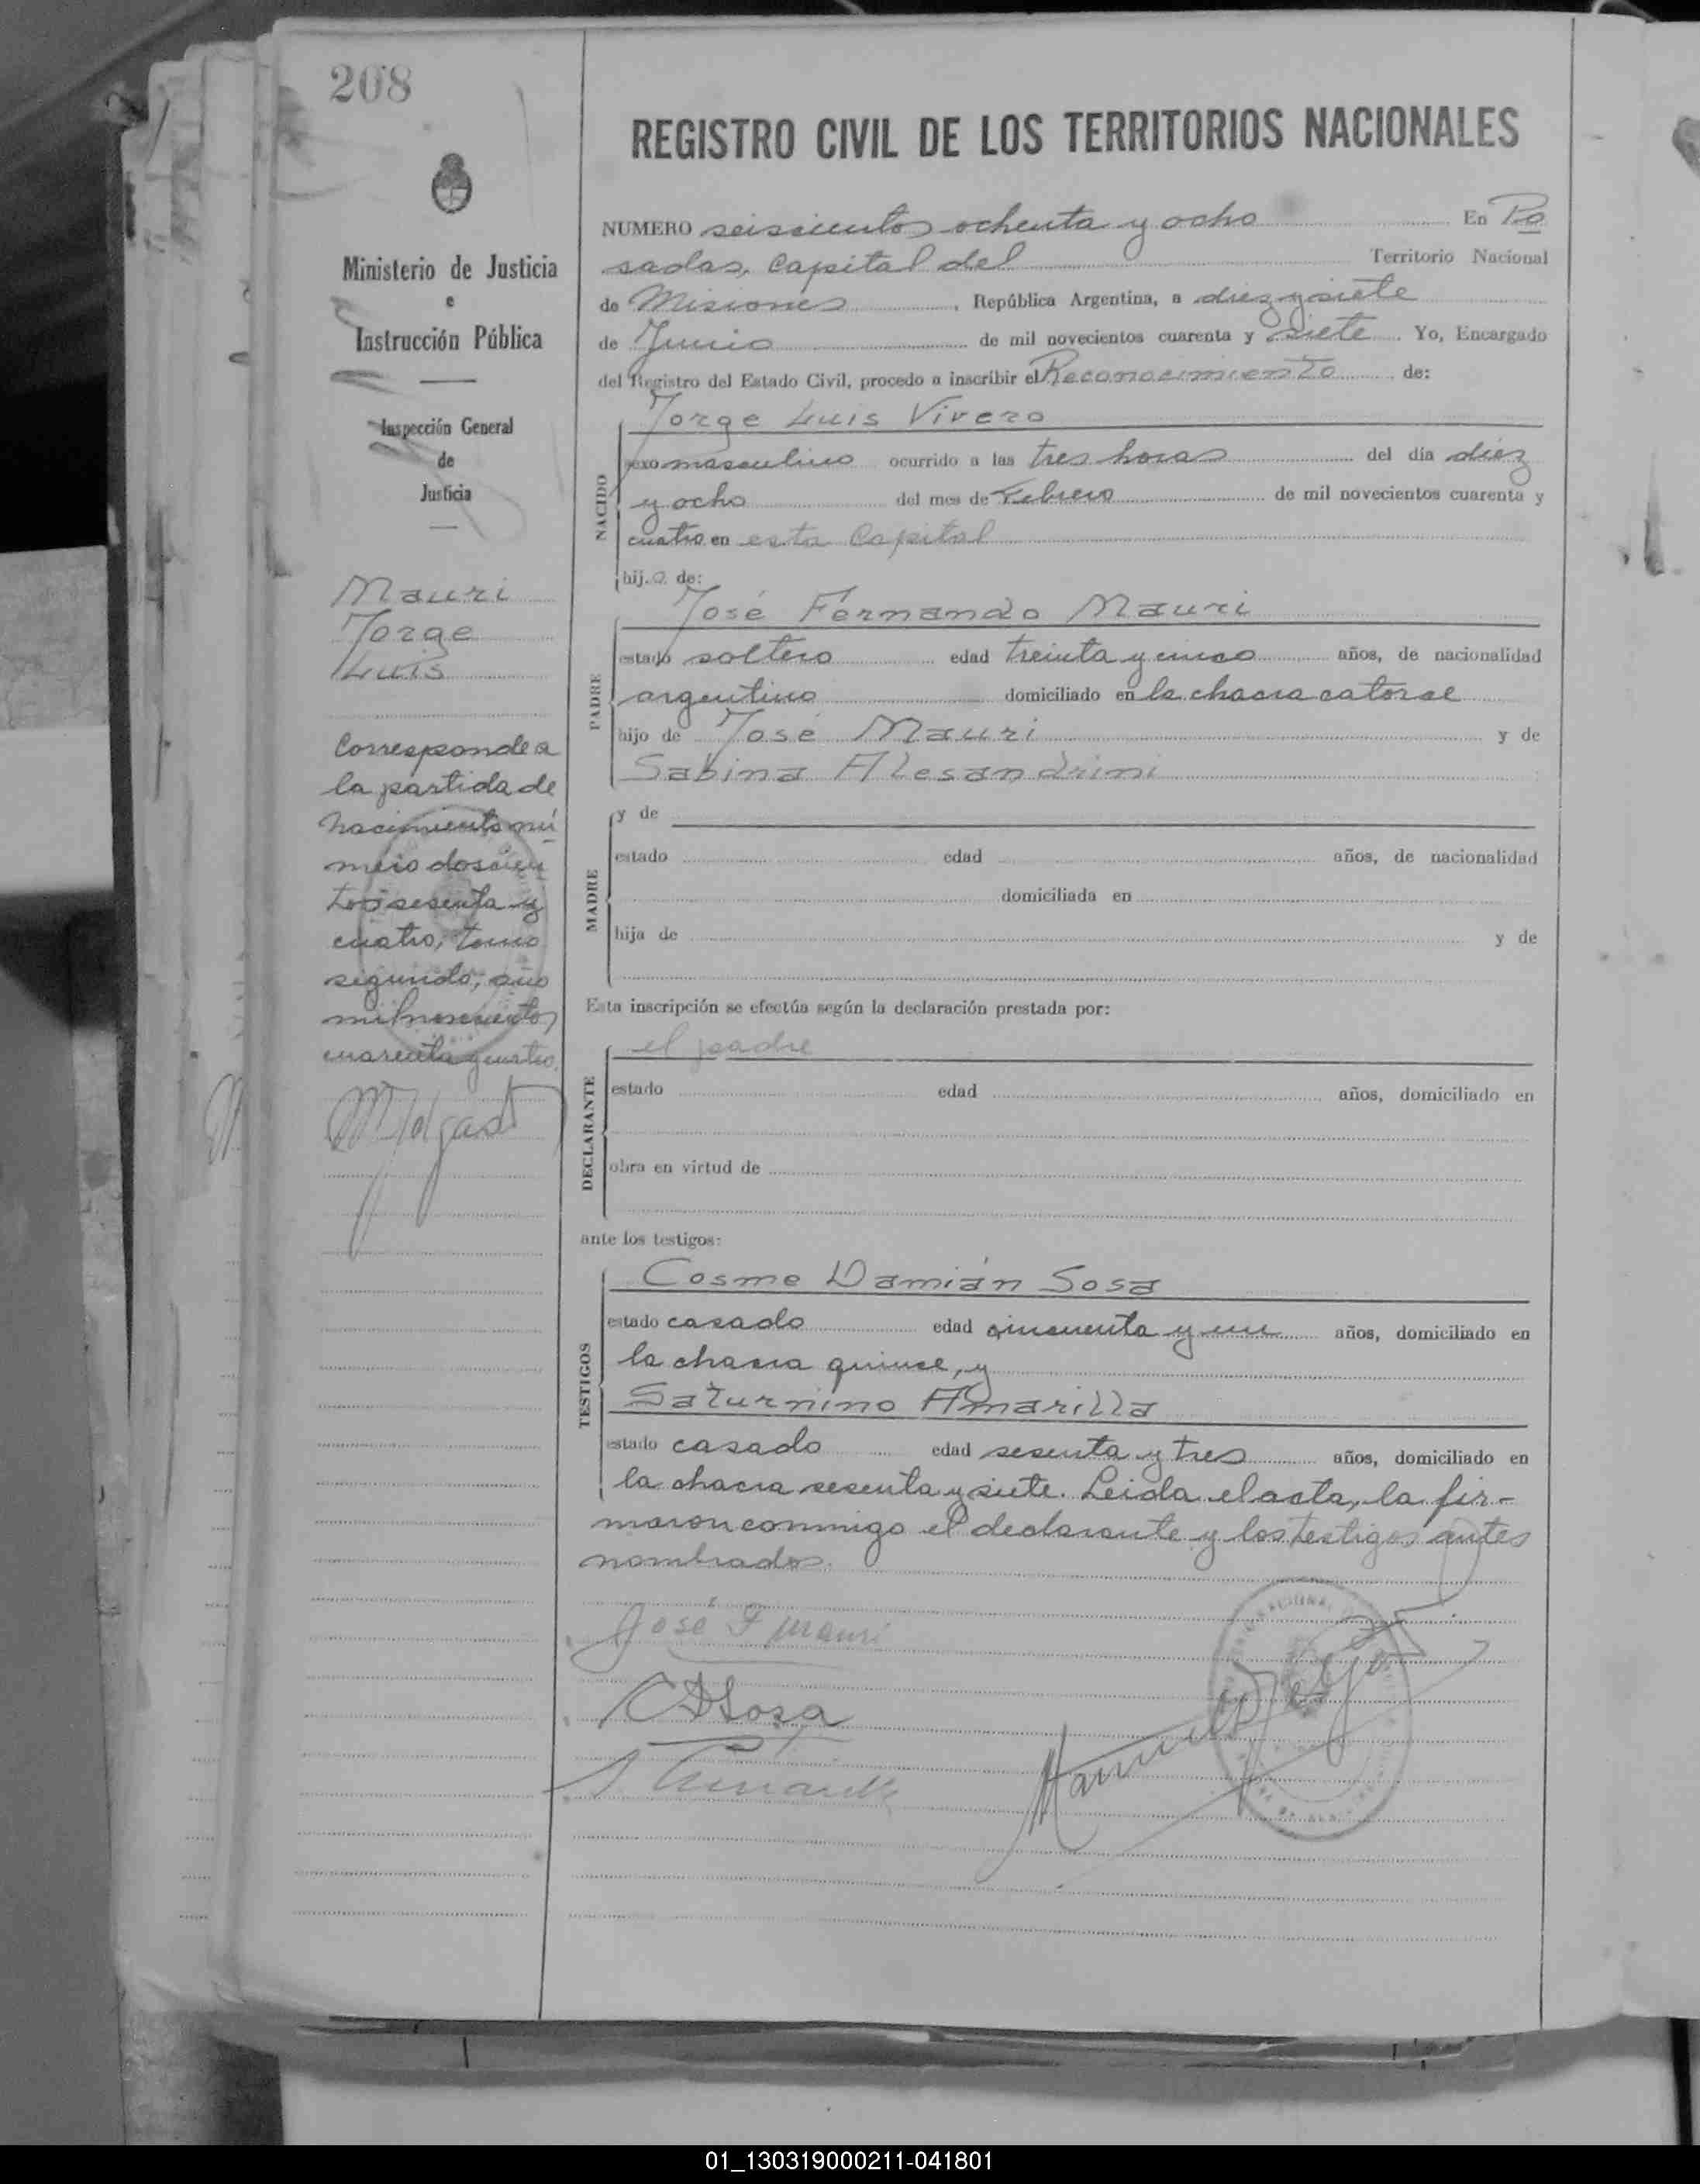 208
REGISTRO CIVIL DE LOS TERRITORIOS NACIONALES
Ministerio de Justicia
e
Instrucción Pública
Inspección General
de
Justicia
Mauri
Jorge
Luis
Corresponde a
la partida de
nacimiento nú
mero doscien
tos sesenta y
cuatro, tomo
segundo, año
mil novecientos
cuarenta y cuatro.
NUMERO seiscientos ochenta y ocho En Po
sadas, Capital del Territorio Nacional
de Misiones, República Argentina, a diez y siete
de Junio de mil novecientos cuarenta y siete. Yo, Encargado
del Registro del Estado Civil, procedo a inscribir el Reconocimiento de:
Jorge Luis Vivero
NACIDO
sexo masculino ocurrido a las tres horas del día diez
y ocho del mes de Febrero de mil novecientos cuarenta y
cuatro en esta Capital
hij.o. de:
José Fernando Mauri
PADRE
estado soltero edad treinta y cinco años, de nacionalidad
argentino domiciliado en la chacra catorce
hijo de José Mauri y de
Sabina Alesandrini
y de
MADRE
estado edad años, de nacionalidad
domiciliada en
hija de y de
Esta inscripción se efectúa según la declaración prestada por:
el padre
DECLARANTE
estado edad años, domiciliado en
obra en virtud de
ante los testigos:
Cosme Damián Sosa
TESTIGOS
estado casado edad cincuenta y un años, domiciliado en
la chacra quince, y
Saturnino Amarilla
estado casado edad sesenta y tres años, domiciliado en
la chacra sesenta y siete. Leida el acta, la fir-
maron conmigo el declarante y los testigos antes
nombrados.
José F Mauri
CDSosa
01_130319000211-041801